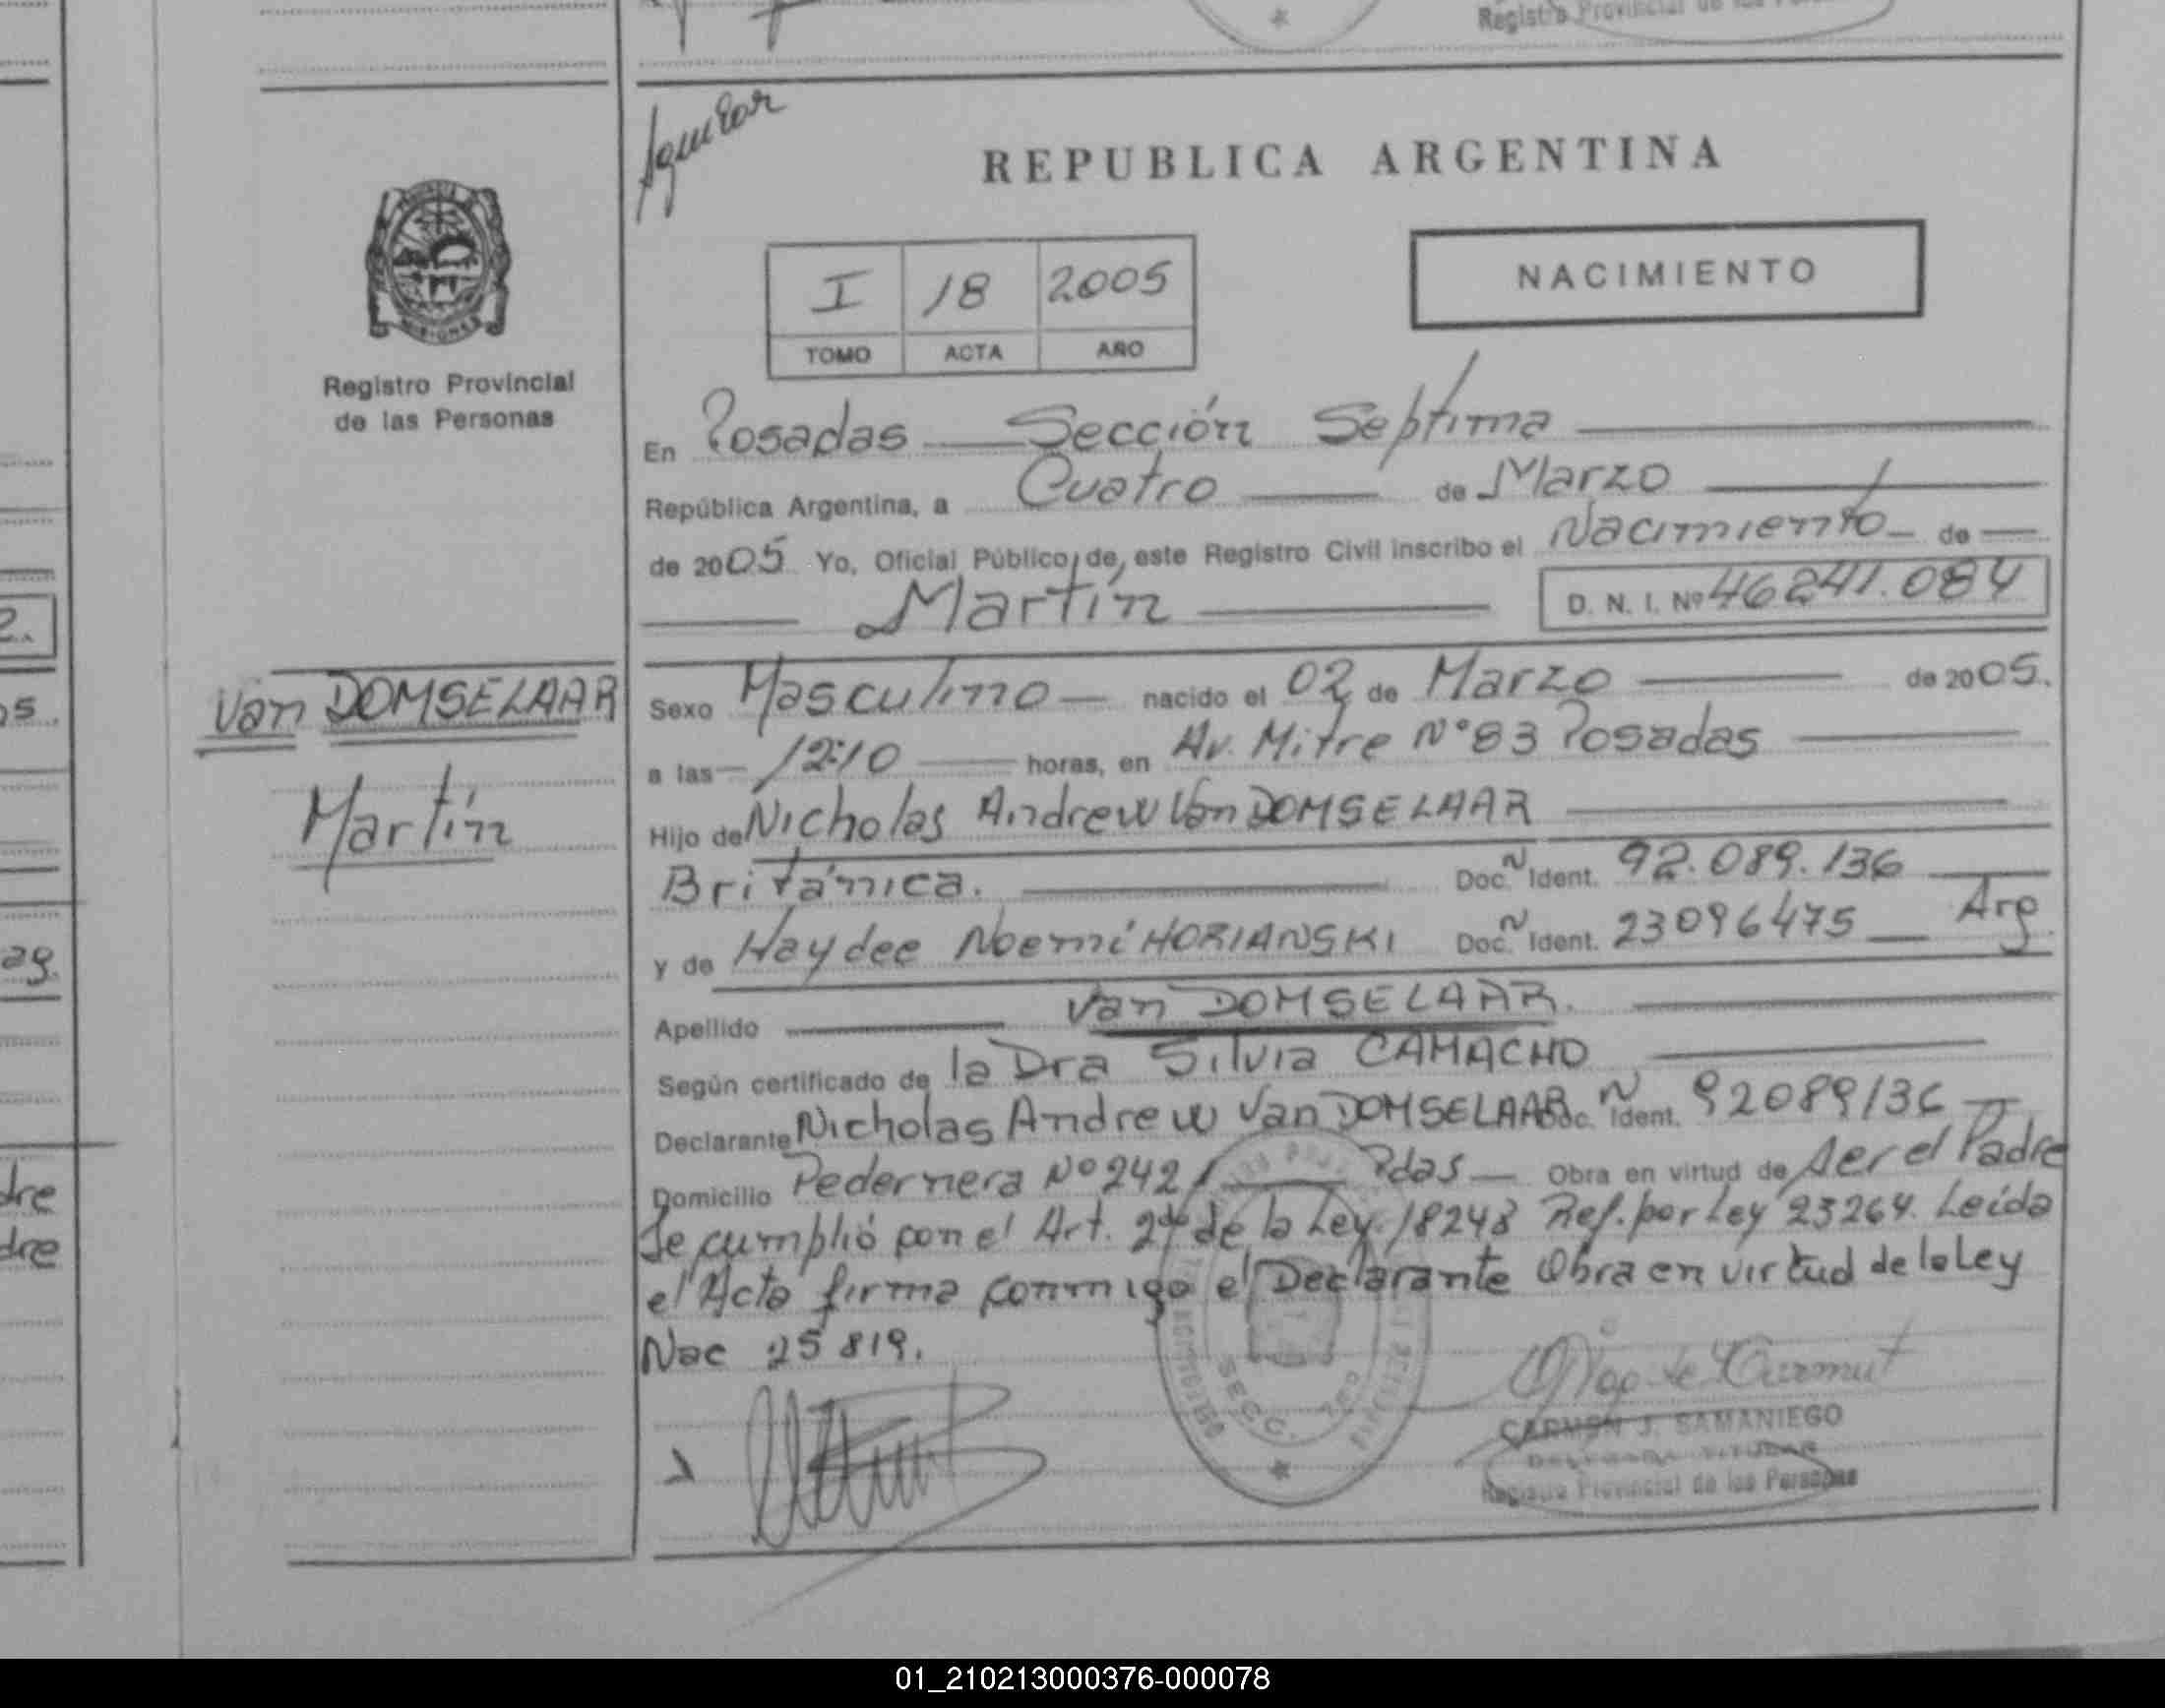 Registro Provincial de los
Aguilar
REPUBLICA ARGENTINA
I 18 2005
TOMO ACTA AÑO
NACIMIENTO
MISIONES
Registro Provincial
de las Personas
En Posadas Sección Septima
República Argentina, a Cuatro de Marzo
de 2005 Yo, Oficial Público de este Registro Civil inscribo el Nacimiento de
Martín D. N. I. Nº 46241.084
van DOMSELAAR
Martín
Sexo Masculino nacido el 02 de Marzo de 2005.
a las 12:10 horas, en Av. Mitre N° 83 Posadas
Hijo de Nicholas Andrew Van DOMSELAAR
Británica. Doc. Ident. 92.089.136
y de Haydee Noemí HORIANSKI Doc. Ident. 23096475 Arg.
Apellido van DOMSELAAR.
Según certificado de la Dra Silvia CAMACHO
Declarante Nicholas Andrew Van DOMSELAAR Doc. Ident. 92089136
Domicilio Pedernera Nº 242 Pdas Obra en virtud de Ser el Padre
Se cumplió con el Art. 2do de la Ley. 18248 Ref. por Ley 23264. Leída
el Acta firma conmigo el Declarante Obra en virtud de la Ley
Nac 25819.
SECC.
CARMEN J. SAMANIEGO
DELEGADA TITULAR
Registro Provincial de las Personas
2.
os.
ag.
dre
dre
01_210213000376-000078